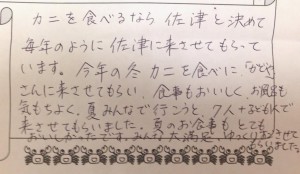 カニを食べるなら 佐津 と決めて
毎年のように 佐津に来させてもらって
います。今年の冬 カニを食べに「かどや」
さんに来させてもらい 食事もおいしく、お風呂も
気もちよく、夏みんなで行こうと 7人+子ども1人で
来させてもらいました。夏のお食事も とても
おいしかったです。みんな 大満足 ゆっくりさせて
もらいました。